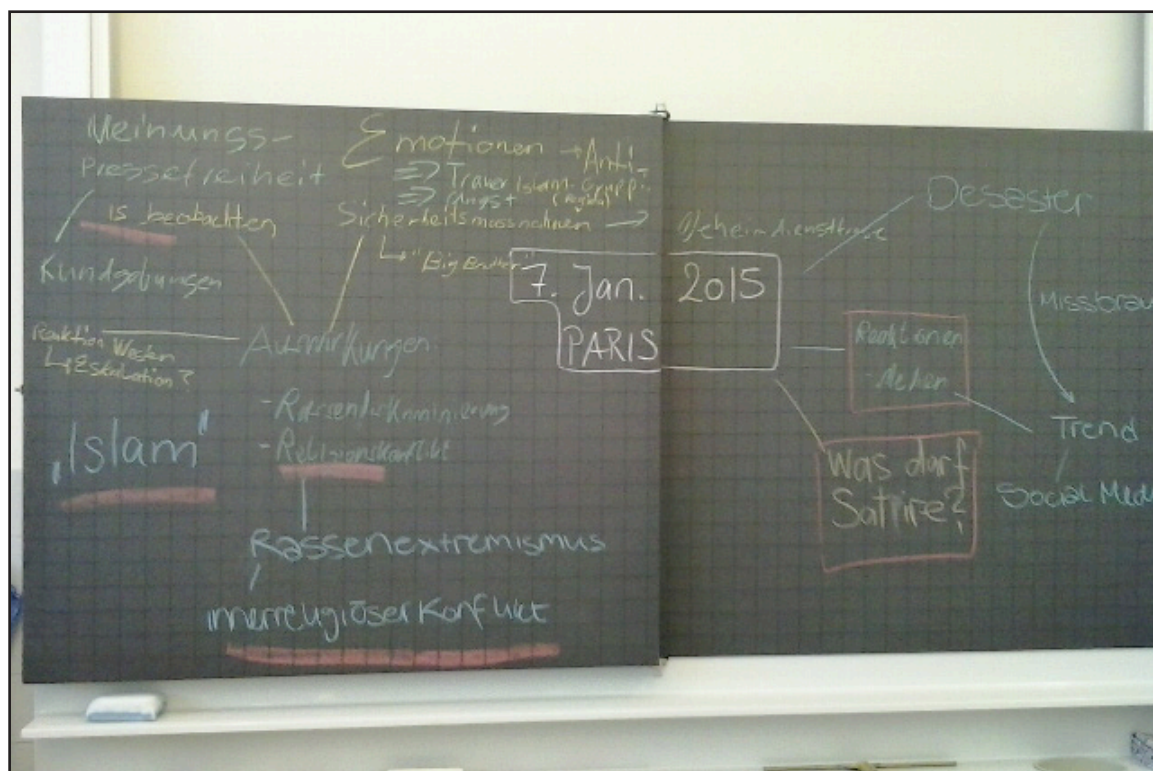 Meinungs-
Pressefreiheit
IS beobachten
Kundgebungen
Reaktion Westen
↳ Eskalation?
„Islam"
Emotionen → Anti-
⇒ Trauer Islam-Grupp.
⇒ Angst (Pegida)
Sicherheitsmassnahmen →
↳ "Big Brother"
Geheimdienst
Auswirkungen
- Rassendiskriminierung
- Religionskonflikt
Rassenextremismus
innerreligiöser Konflikt
7. Jan. 2015
PARIS
Desaster
Missbrau
Reaktionen
- Medien
Trend
Social Medi
Was darf
Satire?